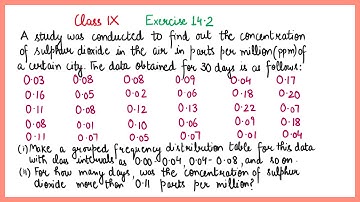 Class IX Exercise 14.2
A study was conducted to find out the concentration
of sulphur dioxide in the air in parts per million (ppm) of
a certain city. The data obtained for 30 days is as follows:
0.03 0.08 0.08 0.09 0.04 0.17
0.16 0.05 0.02 0.06 0.18 0.20
0.11 0.08 0.12 0.13 0.22 0.07
0.08 0.01 0.10 0.06 0.09 0.18
0.11 0.07 0.05 0.07 0.01 0.04
(i) Make a grouped frequency distribution table for this data
with class intervals as 0.00-0.04, 0.04-0.08, and so on.
(ii) For how many days, was the concentration of sulphur
dioxide more than 0.11 parts per million?